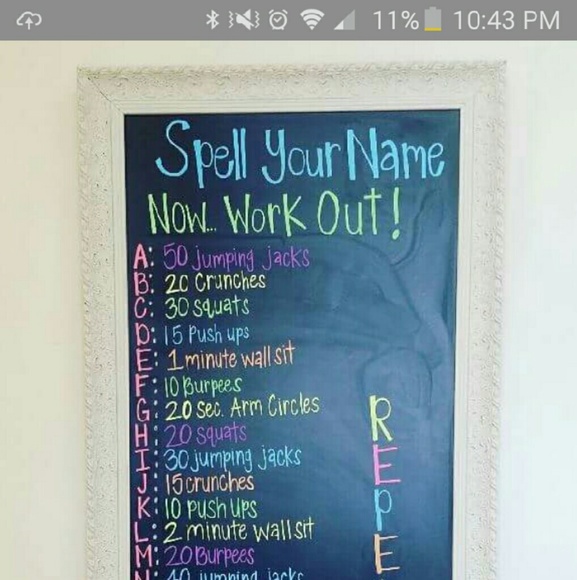 11% 10:43 PM
Spell Your Name
Now... Work Out!
A: 50 jumping jacks
B: 20 Crunches
C: 30 squats
D: 15 Push ups
E: 1 minute wall sit
F: 10 Burpees
G: 20 sec. Arm Circles
H: 20 squats
I: 30 jumping jacks
J: 15 crunches
K: 10 push ups
L: 2 minute wall sit
M: 20 Burpees
N: 40 jumping jacks
R
E
P
E